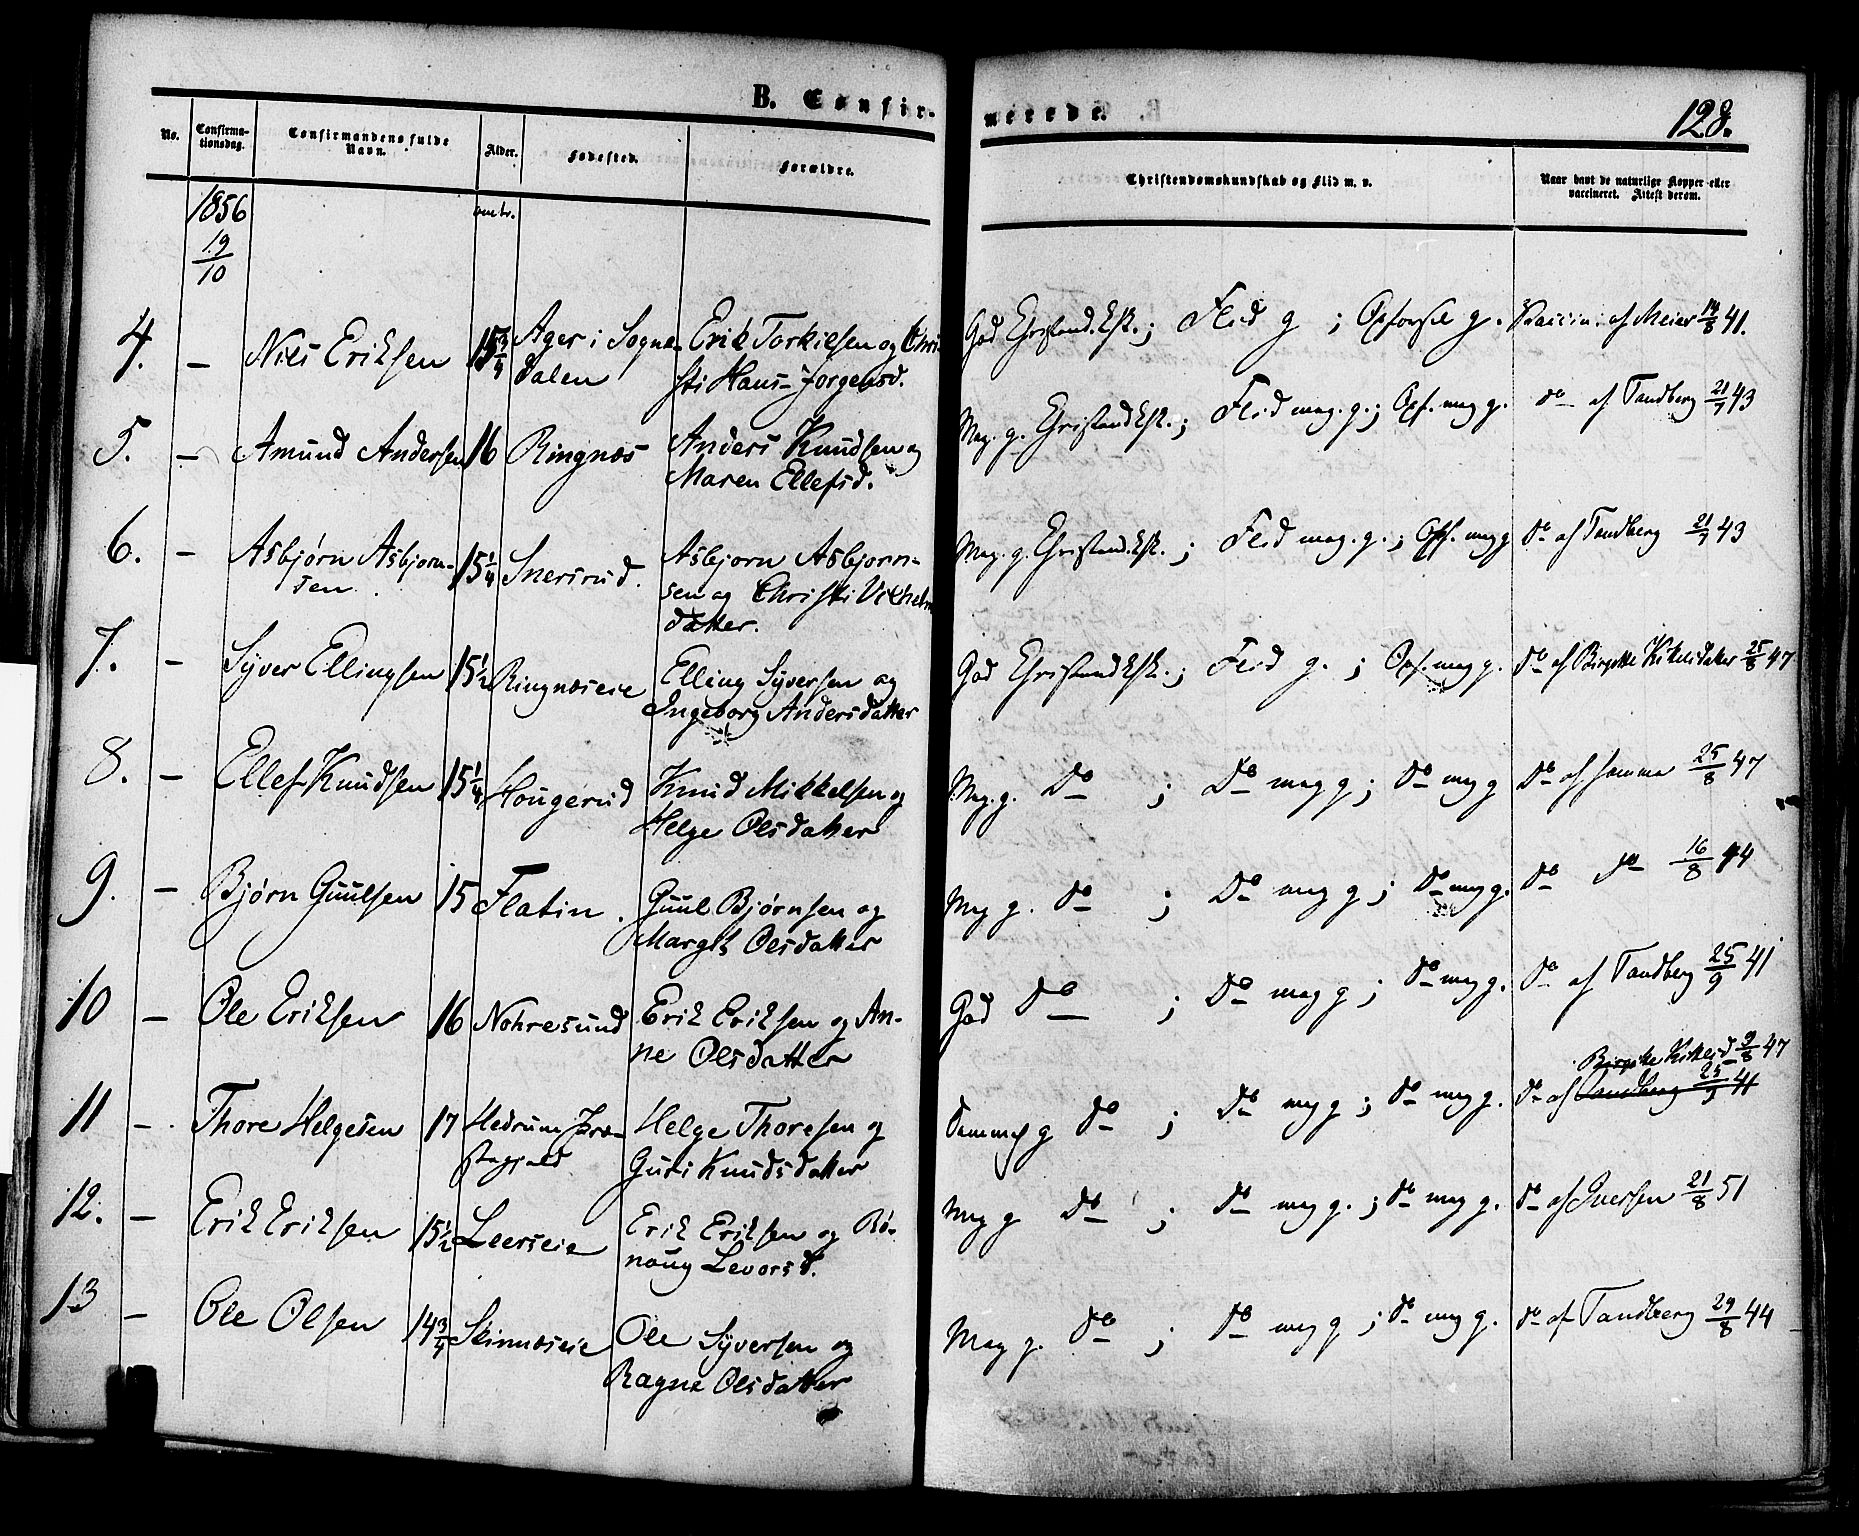 B. Confirmerede.
128.
No. Confirmationsdag. Confirmandens fulde Navn. Alder. Fødested. Forældre. Christendomskundskab og Flid m. v. Naar havt de naturlige Kopper eller vaccineret. Attest derom.
1856
19/10
omtr.
4. – Niels Eriksen 15 3/4 Ager i Sogne- Erik Torkilsen og Chri- God Christend.ksk.; Flid g ; Opførsel g. Vaccin. af Meier 14/8 41.
dalen sti Hans-Jørgensd.
5. – Amund Andersen 16 Ringnæs Anders Knudsen og Meg. g. Christendksk.; Flid meg. g.; Opf. meg g. do af Tandberg 21/7 43
Maren Ellefsd.
6. – Asbjørn Asbjørn- 15 1/4 Snersrud. Asbjørn Asbjørn- Meg. g. Christend.ksk. ; Flid meg. g. ; Opf. meg g do af Tandberg 21/7 43
sen sen og Christi Vilhelm
datter.
7. – Syver Ellingsen 15 1/2 Ringnæseie Elling Syversen og God Christendksk.; Flid g. ; Opf. meg g. do af Birgitte Kittelsdatter 25/8 47
Ingeborg Andersdatter
8. – Ellef Knudsen 15 1/4 Hougerud Knud Mikkelsen og Meg. g. Do ; Do meg g ; do meg g Do af samme 25/8 47
Helge Olsdatter
9. – Bjørn Guulsen 15 Flatin. Guul Bjørnsen og Meg g. do ; Do meg g ; do meg g. do do 16/8 44
Margit Olsdatter
10 – Ole Eriksen 16 Nohresund Erik Eriksen og An- God Do ; Do meg g ; do meg g. do af Tandberg 25/9 41
ne Olsdatter
Birgitte Kittelsd 9/8 47
11 – Thore Helgesen 17 Hedrum Præ- Helge Thoresen og Temmel g do ; do meg g ; do meg g. do af Tandberg 25/9 41
stegjeld Guri Knudsdatter
12. – Erik Eriksen 15 1/2 Leerseie Erik Eriksen og Bø- Meg g do ; do meg g. ; do meg g. do af Iversen 21/8 51
noug Levorsd.
13 – Ole Olsen 14 3/4 Skinnæseie Ole Syversen og Meg g. do ; do meg g ; do meg g. do af Tandberg 29/8 44
Ragne Olsdatter